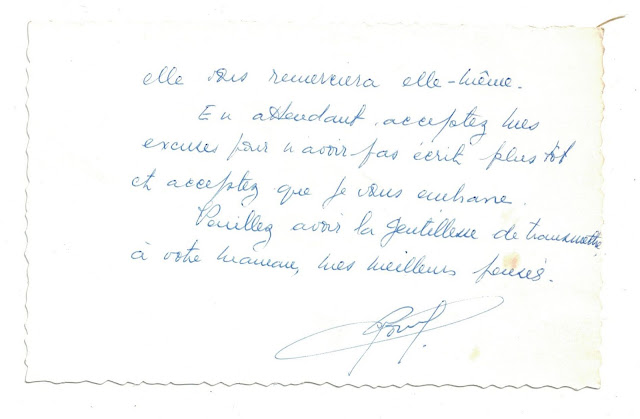 elle vous remerciera elle-même.
En attendant, acceptez mes
excuses pour n'avoir pas écrit plus tôt
et acceptez que je vous embrasse.
Veuillez avoir la gentillesse de transmettre,
à votre maman, mes meilleurs pensés.